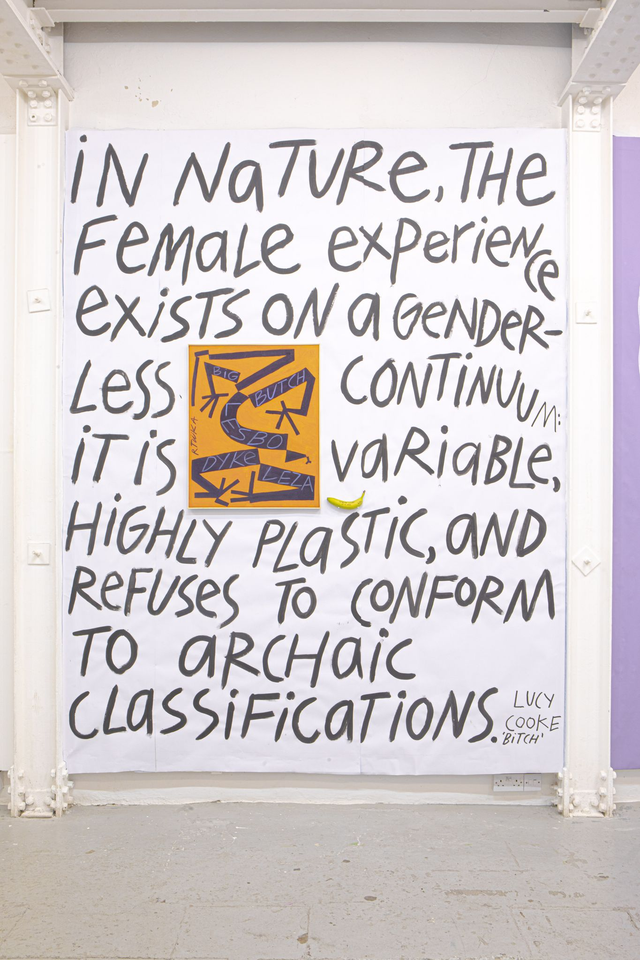 iN NaTURe, THe
FeMaLe experieNce
exisTS ON a GeNDeR-
Less CONTiNUUM:
iT iS VaRiaBLe,
HiGHLY PLaSTiC, aND
ReFUSeS TO CONFORM
TO aRCHaiC
CLassiFiCaTiONS.
LUCY
COOKE
'BiTCH'
BIG
BUTCH
LESBO
DYKe
LEZA